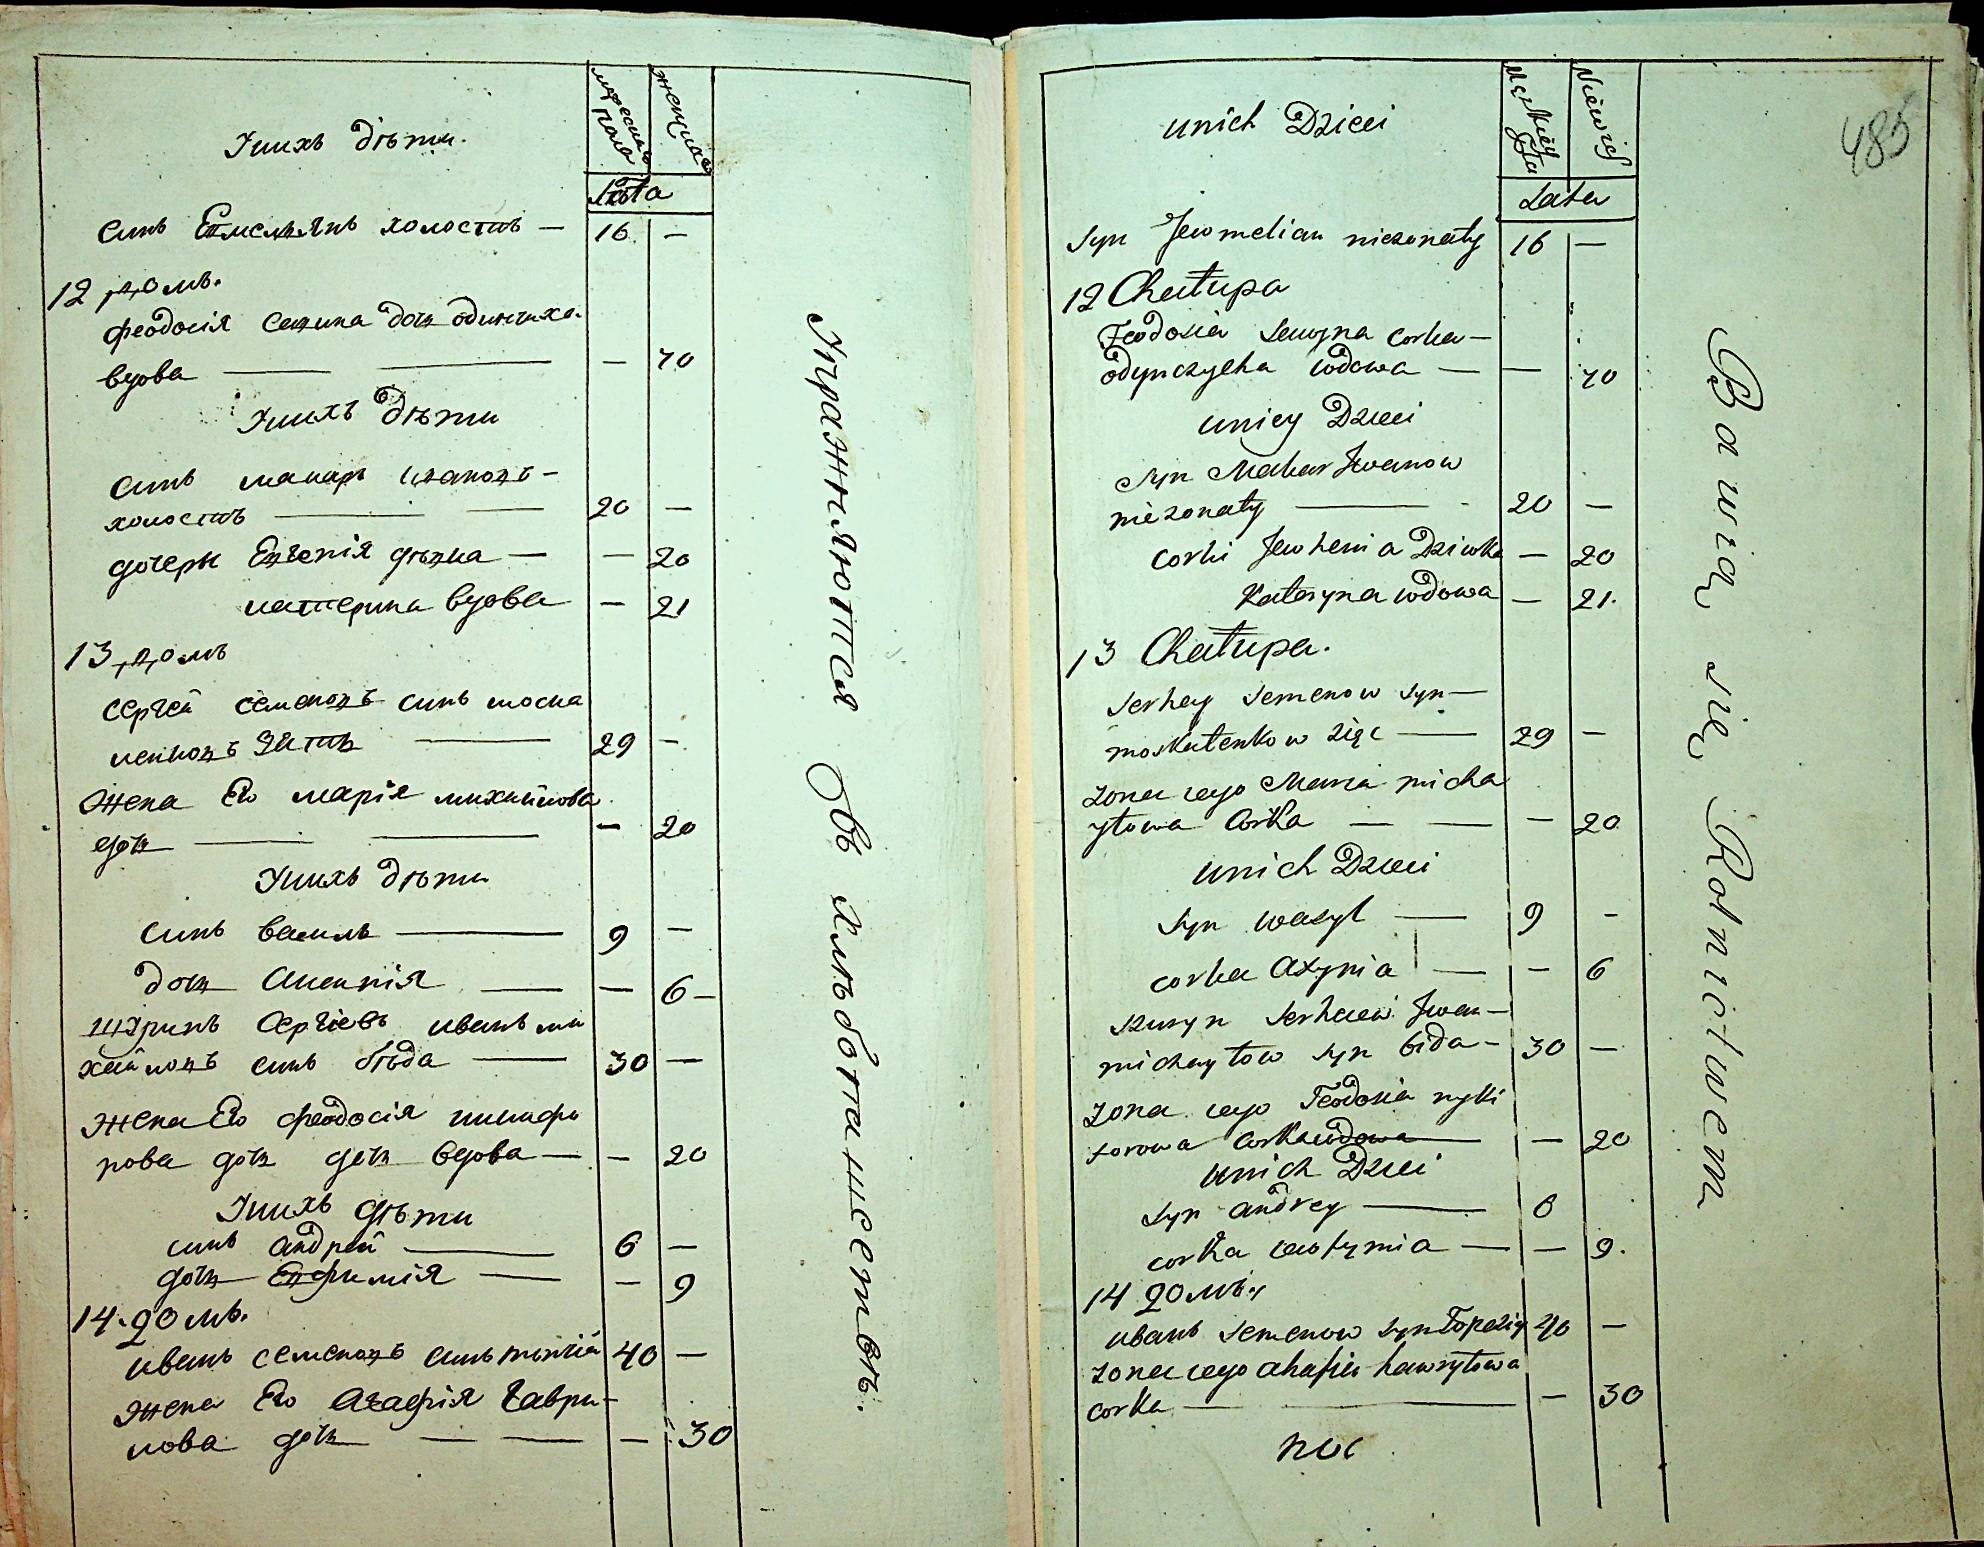 Унихъ дѣти.
мужескаго пола
женскаго
лѣта
синъ Емельянъ холостъ — 16 —
12 домъ.
феодосія савина дочь одинчиха
вдова — — — 70
Унихъ дѣти
синъ макаръ ивановъ —
холостъ — — 20 —
дочери Евгенія дѣвка — — 20
катерина вдова — 21
13 домъ
сергей семеновъ синъ моска
ленковъ зять — 29 —
жена Его марія михайлова
дочь — — — 20
Унихъ дѣти
синъ василь — 9 —
дочь Аксенія — — 6 —
шуринъ сергіевъ иванъ ми
хайловъ синъ бѣда — 30 —
жена Его феодосія никифо
рова дочь вдова — — 20
Унихъ дѣти
синъ андрей — 6 —
дочь Евфимія — — 9
14. домъ.
иванъ семеновъ синъ 40 —
жена Его Агафія гаври-
лова дочь — — — 30
Упражняются въ хлѣбопашествѣ.
485
unich Dzieci
Męskiey
Niewieś
Lata
syn Jewmelian niezonaty 16 —
12 Chałupa
Feodosia sawyna corka —
odynczycha wdowa — — 70
uniey Dzieci
syn Makar Iwanow
niezonaty — 20 —
corki Jewhenia Dziwka — 20
Kateryna wdowa — 21.
13 Chałupa.
serhey semenow syn —
moskalenkow zięc — 29 —
zona iego Maria micha
yłowa Corka — — — 20
unich Dzieci
syn wasyl — 9 —
corka axynia — — 6
szuryn serheiew Iwan —
michayłow syn bida — 30 —
zona iego Feodosia nyki
forowa corka wdowa — — 20
unich Dzieci
syn andrey — 6
corka iewfymia — — 9.
14 домъ.
иванъ semenow syn 40 —
zona iego ahafia hawryłowa
corka — — — 30
Bawią się Rolnictwem